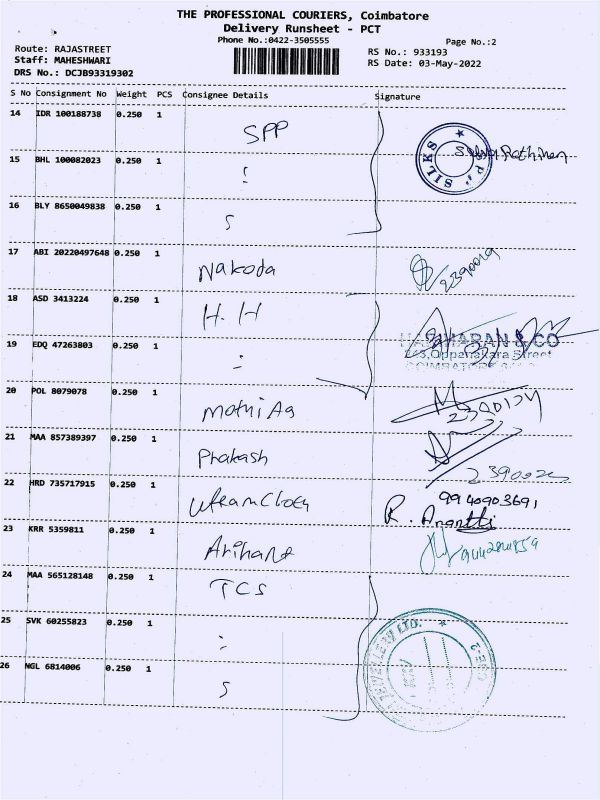 THE PROFESSIONAL COURIERS, Coimbatore
Delivery Runsheet - PCT
Phone No.:0422-3505555
Page No.:2
Route: RAJASTREET
RS No.: 933193
Staff: MAHESHWARI
RS Date: 03-May-2022
DRS No.: DCJB93319302
S No Consignment No Weight PCS Consignee Details Signature
14 IDR 100188738 0.250 1 SPP
SILKS
15 BHL 100082023 0.250 1
16 BLY 8650049838 0.250 1
17 ABI 20220497648 0.250 1 Nakoda 2390019
18 ASD 3413224 0.250 1 H.H
& CO
19 EDQ 47263803 0.250 1
Oppanakara Street
COIMBATORE
20 POL 8079078 0.250 1 Mothi Ag
21 MAA 857389397 0.250 1 Prakash
22 HRD 735717915 0.250 1 9940903691
R. Ananthi
23 KRR 5359811 0.250 1 Arihant
24 MAA 565128148 0.250 1 TCS
25 SVK 60255823 0.250 1
LTD.
26 NGL 6814006 0.250 1